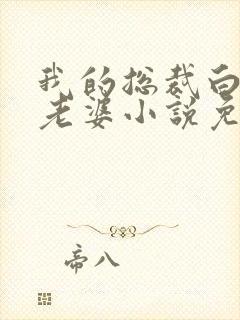 我的总裁白
老婆小说免
帝八